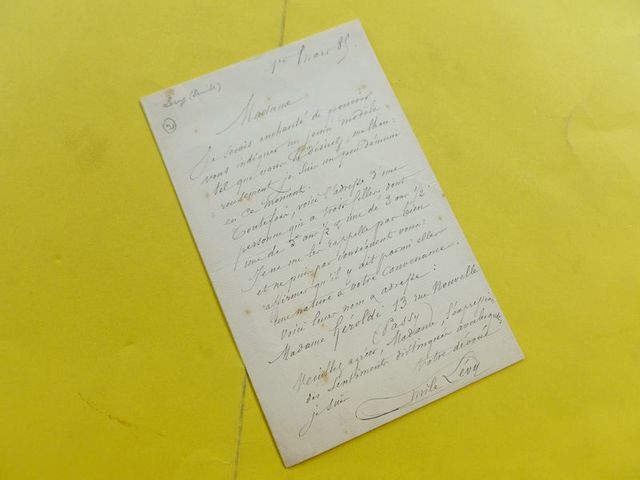 1er mars 85.
Levy (Emile)
Madame
Je serais enchanté de pouvoir
vous indiquer un jeune modèle
tel que vous le désirez; malheu-
reusement je suis un peu démuni
en ce moment.
Toutefois, voici l'adresse d'une
personne qui a trois filles dont
une de 5 ans ½ & une de 3 ans ½.
Je ne me les rappelle pas bien
et ne puis par conséquent vous
affirmer qu'il y ait parmi elles
une nature à votre convenance.
Voici leur nom & adresse:
Madame Géroldi 13 rue Nouvelle
(Passy
Veuillez agréer, Madame, l'expression
des sentiments distingués avec lesquels
je suis votre dévoué
Emile Lévy